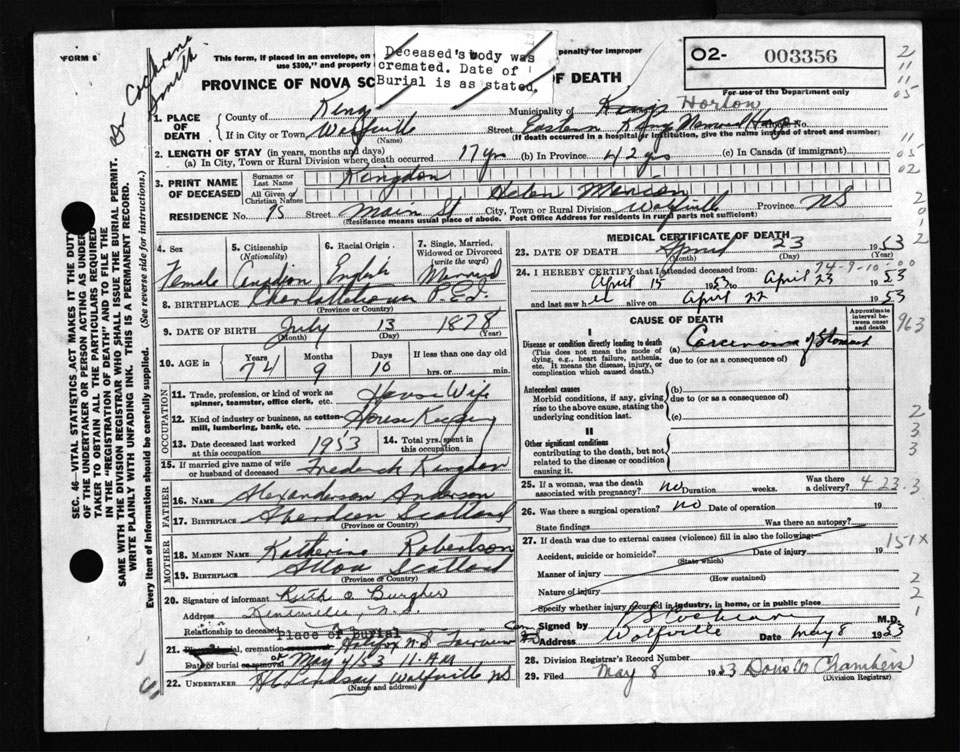 FORM 6
Dr Cochrane Smith
This form, if placed in an envelope, on penalty for improper
use $300," and property
Deceased's body was
cremated. Date of
Burial is as stated.
PROVINCE OF NOVA SC OF DEATH
02- 003356
For use of the Department only
1. PLACE OF DEATH
County of Kings Municipality of Kings Horton
If in City or Town Wolfville Street Eastern Kings Memorial Hosp
(Name) (If death occurred in a hospital or institution, give the name instead of street and number)
2. LENGTH OF STAY (in years, months and days)
(a) In City, Town or Rural Division where death occurred 17 yrs (b) In Province 42 yrs (c) In Canada (if immigrant)
3. PRINT NAME OF DECEASED
Surname or Last Name Kingdon
All Given or Christian Names Helen Marion
RESIDENCE No. 75 Street Main St City, Town or Rural Division Wolfville Province NS
(Residence means usual place of abode. Post Office Address for residents in rural parts not sufficient)
4. Sex Female
5. Citizenship (Nationality) Canadian
6. Racial Origin English
7. Single, Married, Widowed or Divorced (write the word) Married
8. BIRTHPLACE Charlottetown P.E.I.
(Province or Country)
9. DATE OF BIRTH July 13 1878
(Month) (Day) (Year)
10. AGE in Years 74 Months 9 Days 10 If less than one day old hrs. or min.
OCCUPATION
11. Trade, profession, or kind of work as spinner, teamster, office clerk, etc. House Wife
12. Kind of industry or business, as cotton mill, lumbering, bank, etc. House Keeping
13. Date deceased last worked at this occupation 1953
14. Total yrs. spent in this occupation
15. If married give name of wife or husband of deceased Frederick Kingdon
FATHER
16. NAME Alexanderson Anderson
17. BIRTHPLACE Aberdeen Scotland
(Province or Country)
MOTHER
18. MAIDEN NAME Katherine Robertson
19. BIRTHPLACE Alloa Scotland
(Province or Country)
20. Signature of informant Ruth O. Burgher
Address Kentville, N.S.
Relationship to deceased
Place of Burial
21. burial, cremation Halifax N.S Fairview Cem
Date of burial or removal May 4/53 11 AM
22. UNDERTAKER H C Lindsay Wolfville NS
(Name and address)
MEDICAL CERTIFICATE OF DEATH
23. DATE OF DEATH April 23 1953
(Month) (Day)
74-9-10-00
24. I HEREBY CERTIFY that I attended deceased from:
April 15 1953 to April 23 1953
and last saw h alive on April 22 1953
CAUSE OF DEATH
Approximate interval between onset and death
963
I
Disease or condition directly leading to death (a) Carcinoma of Stomach
(This does not mean the mode of dying, e.g., heart failure, asthenia, etc. It means the disease, injury, or complication which caused death.)
due to (or as a consequence of)
Antecedent causes (b)
Morbid conditions, if any, giving rise to the above cause, stating the underlying condition last.
due to (or as a consequence of)
(c)
II
Other significant conditions
contributing to the death, but not related to the disease or condition causing it.
25. If a woman, was the death associated with pregnancy? no Duration weeks. Was there a delivery? 4 23.3
26. Was there a surgical operation? no Date of operation
State findings Was there an autopsy?
27. If death was due to external causes (violence) fill in also the following: 151X
Accident, suicide or homicide? Date of injury 19
(State which)
Manner of injury
(How sustained)
Nature of injury
Specify whether injury occured in industry, in home, or in public place
Signed by Cochrane M.D.
Address Wolfville Date May 8 1953
28. Division Registrar's Record Number
29. Filed May 8 1953 Chambers
(Division Registrar)
SEC. 46—VITAL STATISTICS ACT MAKES IT THE DUTY
OF THE UNDERTAKER OR PERSON ACTING AS UNDER-
TAKER TO OBTAIN ALL THE PARTICULARS REQUIRED
IN THE "REGISTRATION OF DEATH" AND TO FILE THE
SAME WITH THE DIVISION REGISTRAR WHO SHALL ISSUE THE BURIAL PERMIT.
WRITE PLAINLY WITH UNFADING INK. THIS IS A PERMANENT RECORD.
Every item of Information should be carefully supplied. (See reverse side for instructions.)
2
11
11
05
11
05
02
2
0
1
2
2
3
3
2
2
1